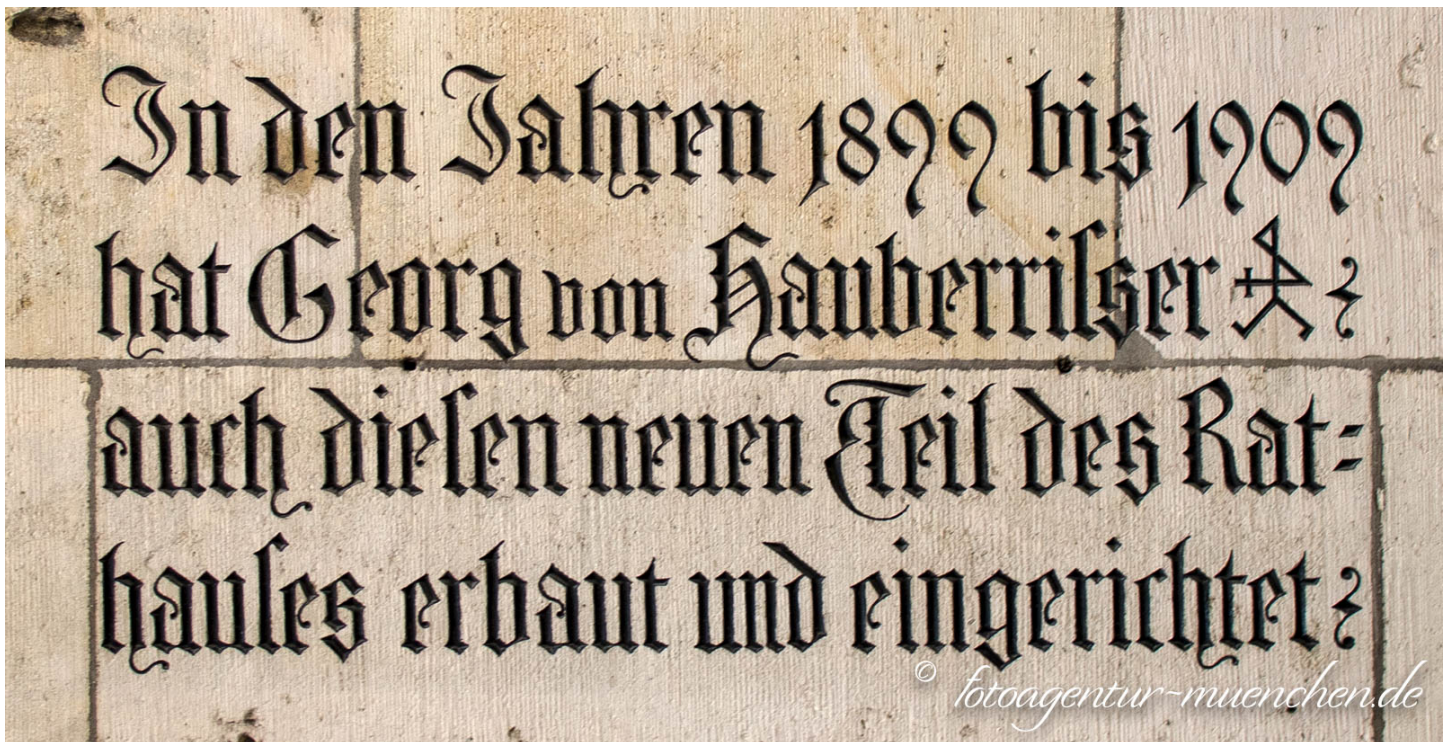 In den Jahren 1899 bis 1909
hat Georg von Hauberriſser
auch dieſen neuen Teil des Rat⸗
hauſes erbaut und eingerichtet
© fotoagentur-muenchen.de